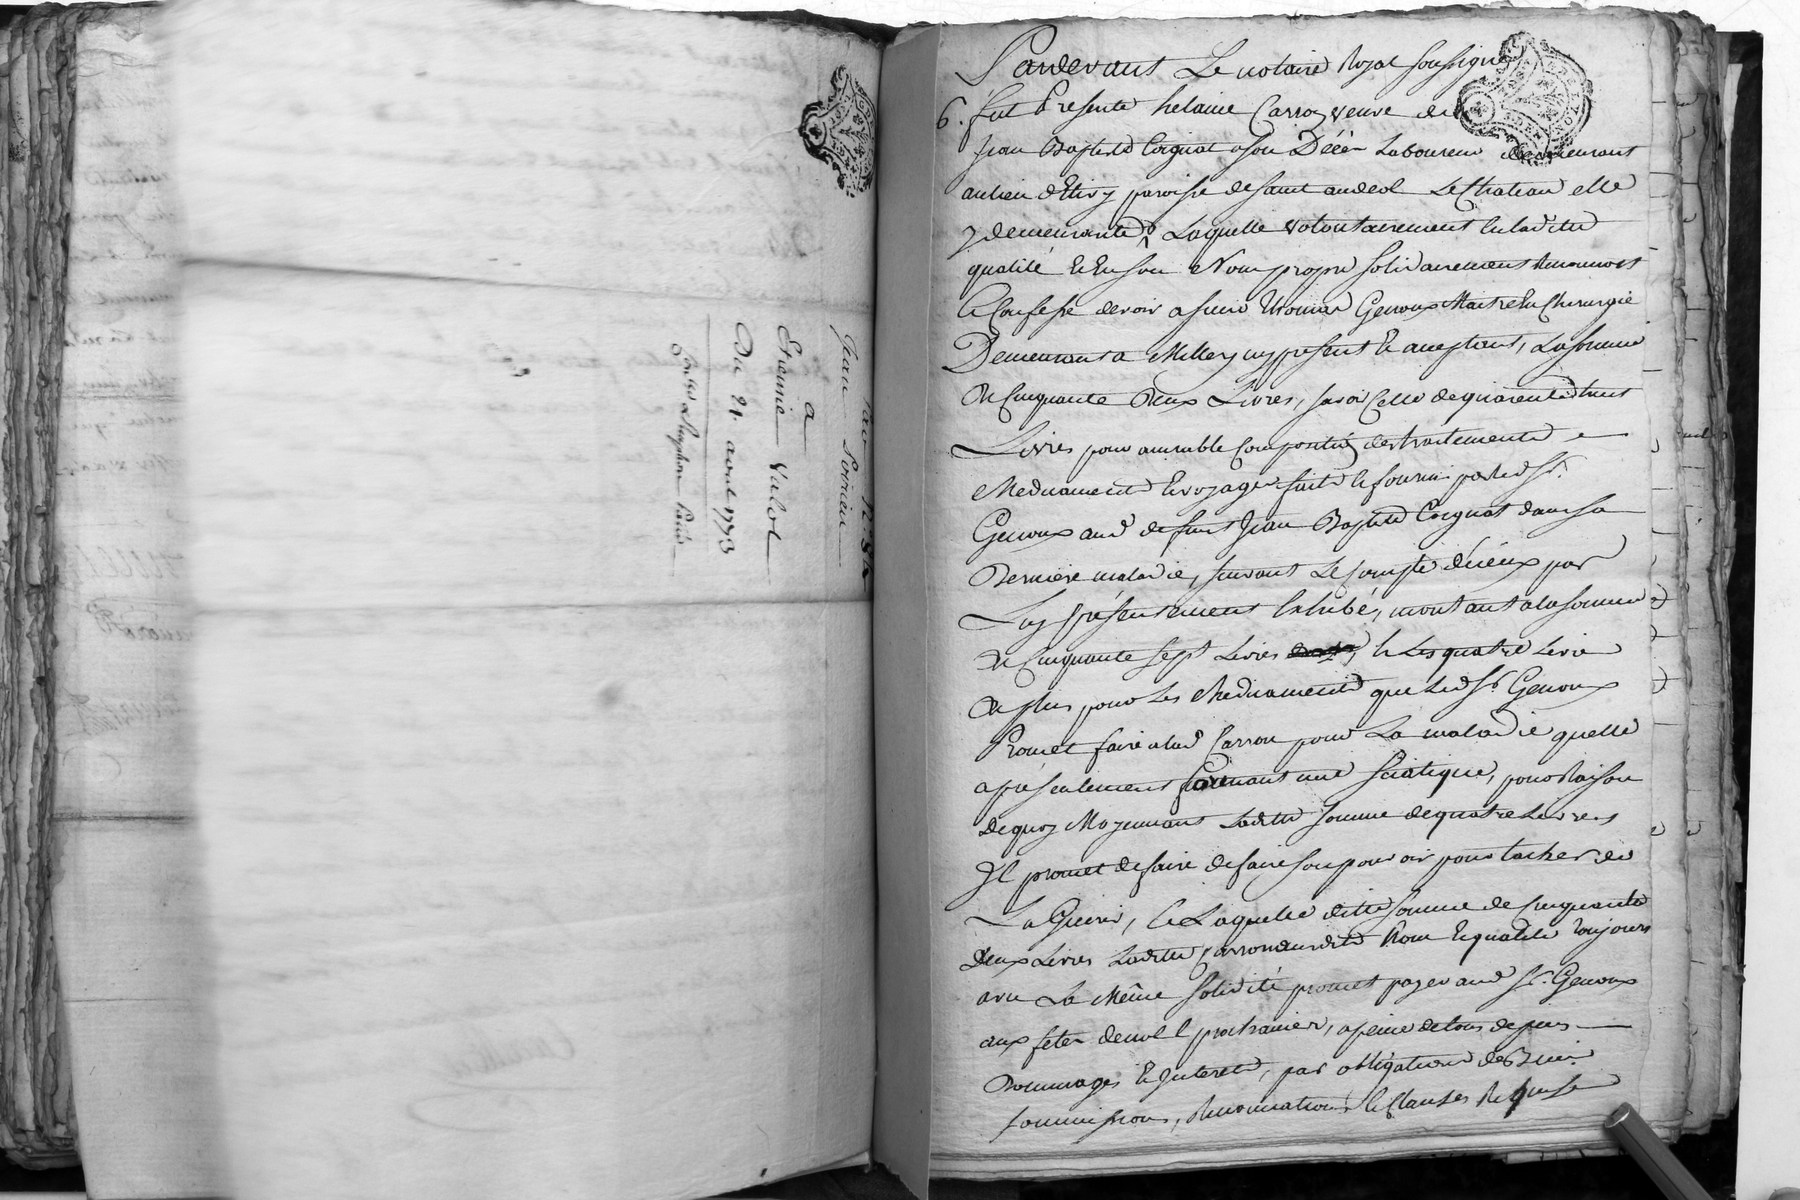 Jean Poirieu
a
Etienne Valot
Du 21 avout 1773
Pardevant Le notaire Royal soussigné
6. fut Presente helaine Carron veuve de
Jean Baptiste Coignat a son Décé Laboureur demeurant
au lieu d'Etivy paroisse de saint andeol Le Chateau elle
y demeurante, Laquelle volontairement En laditte
qualité Et En son Nom propre solidairement Reconnoit
& Confesse devoir a sieur Genoux Maitre En Chirurgie
Demeurant a Millery icy present & acceptant, La somme
De Cinquante Deux Livres, savoir Celle de quarente huit
Livres pour amiable Composition des traitements &
Medicaments & voyages faits & fournis par led. Sr.
Genoux aud. defunt Jean Baptiste Coignat dans sa
Derniere maladie, suivant Le Compte d'iceux par
Luy présentement Exhibé, montant a la somme
de Cinquante sept Livres & Les quatre Livres
de plus pour Les Medicaments que Led. Sr. Genoux
Promet faire a lad. Carron pour La maladie quelle
a présentement une Sciatique, pour Raison
de quoy Moyennant Laditte somme de quatre Livres
Il promet de faire de faire son pouvoir pour tacher de
La Guerir, & Laquelle ditte somme de Cinquante
Deux Livres Laditte Carron audits Nom & qualité toujours
avec La Même solidité promet payer aud. Sr. Genoux
aux fetes de noel prochaines, a peine de tous depens
Dommages & Interets, par obligation de Biens
soumissions, Renonciations & Clauses Requises